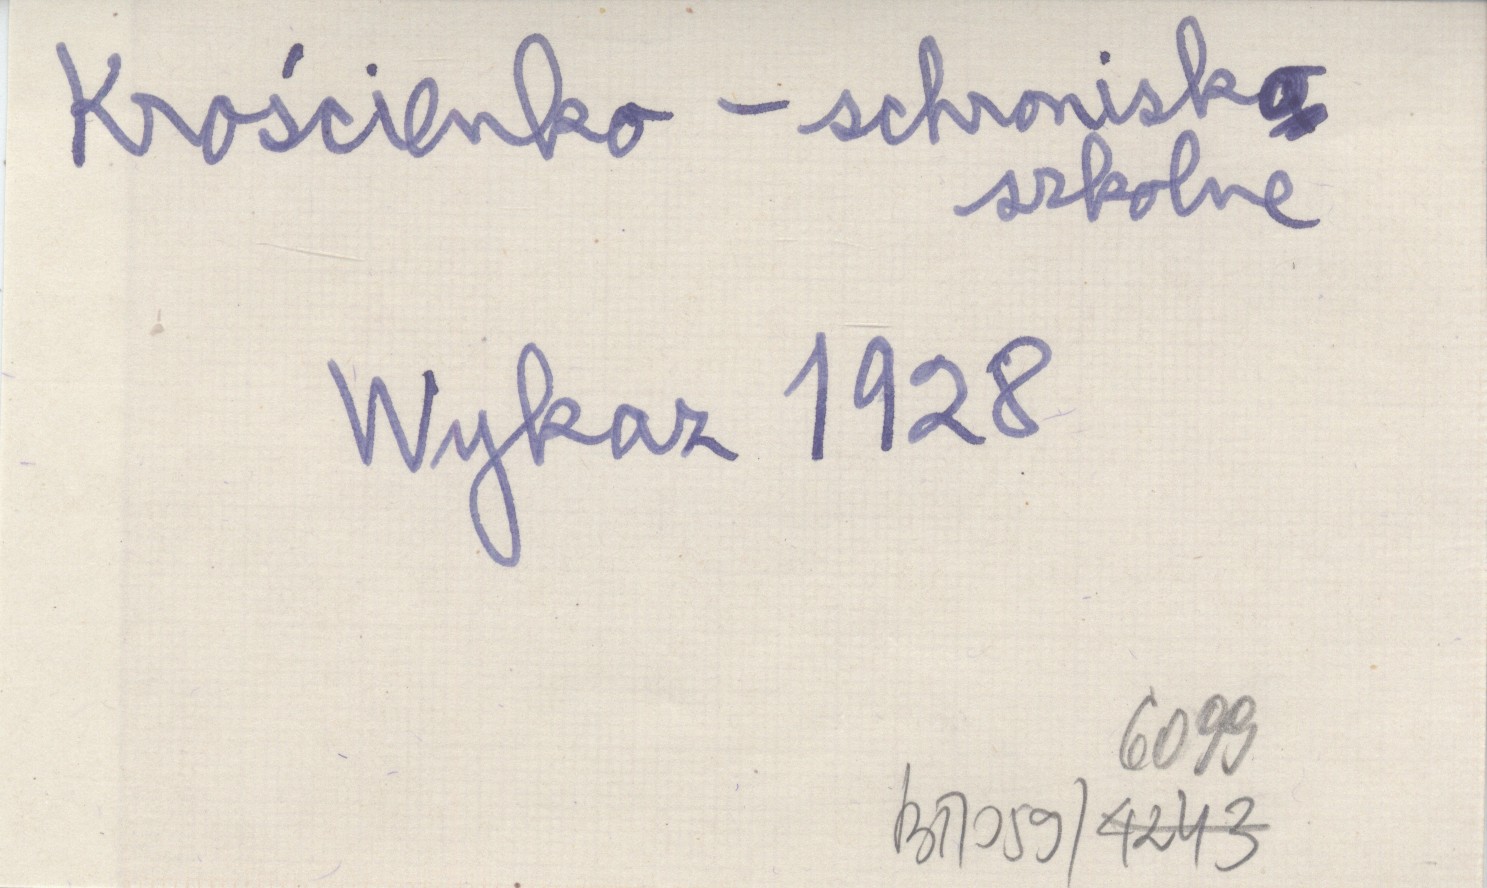 Krościenko – schronisko
szkolne
Wykaz 1928
6099
4243